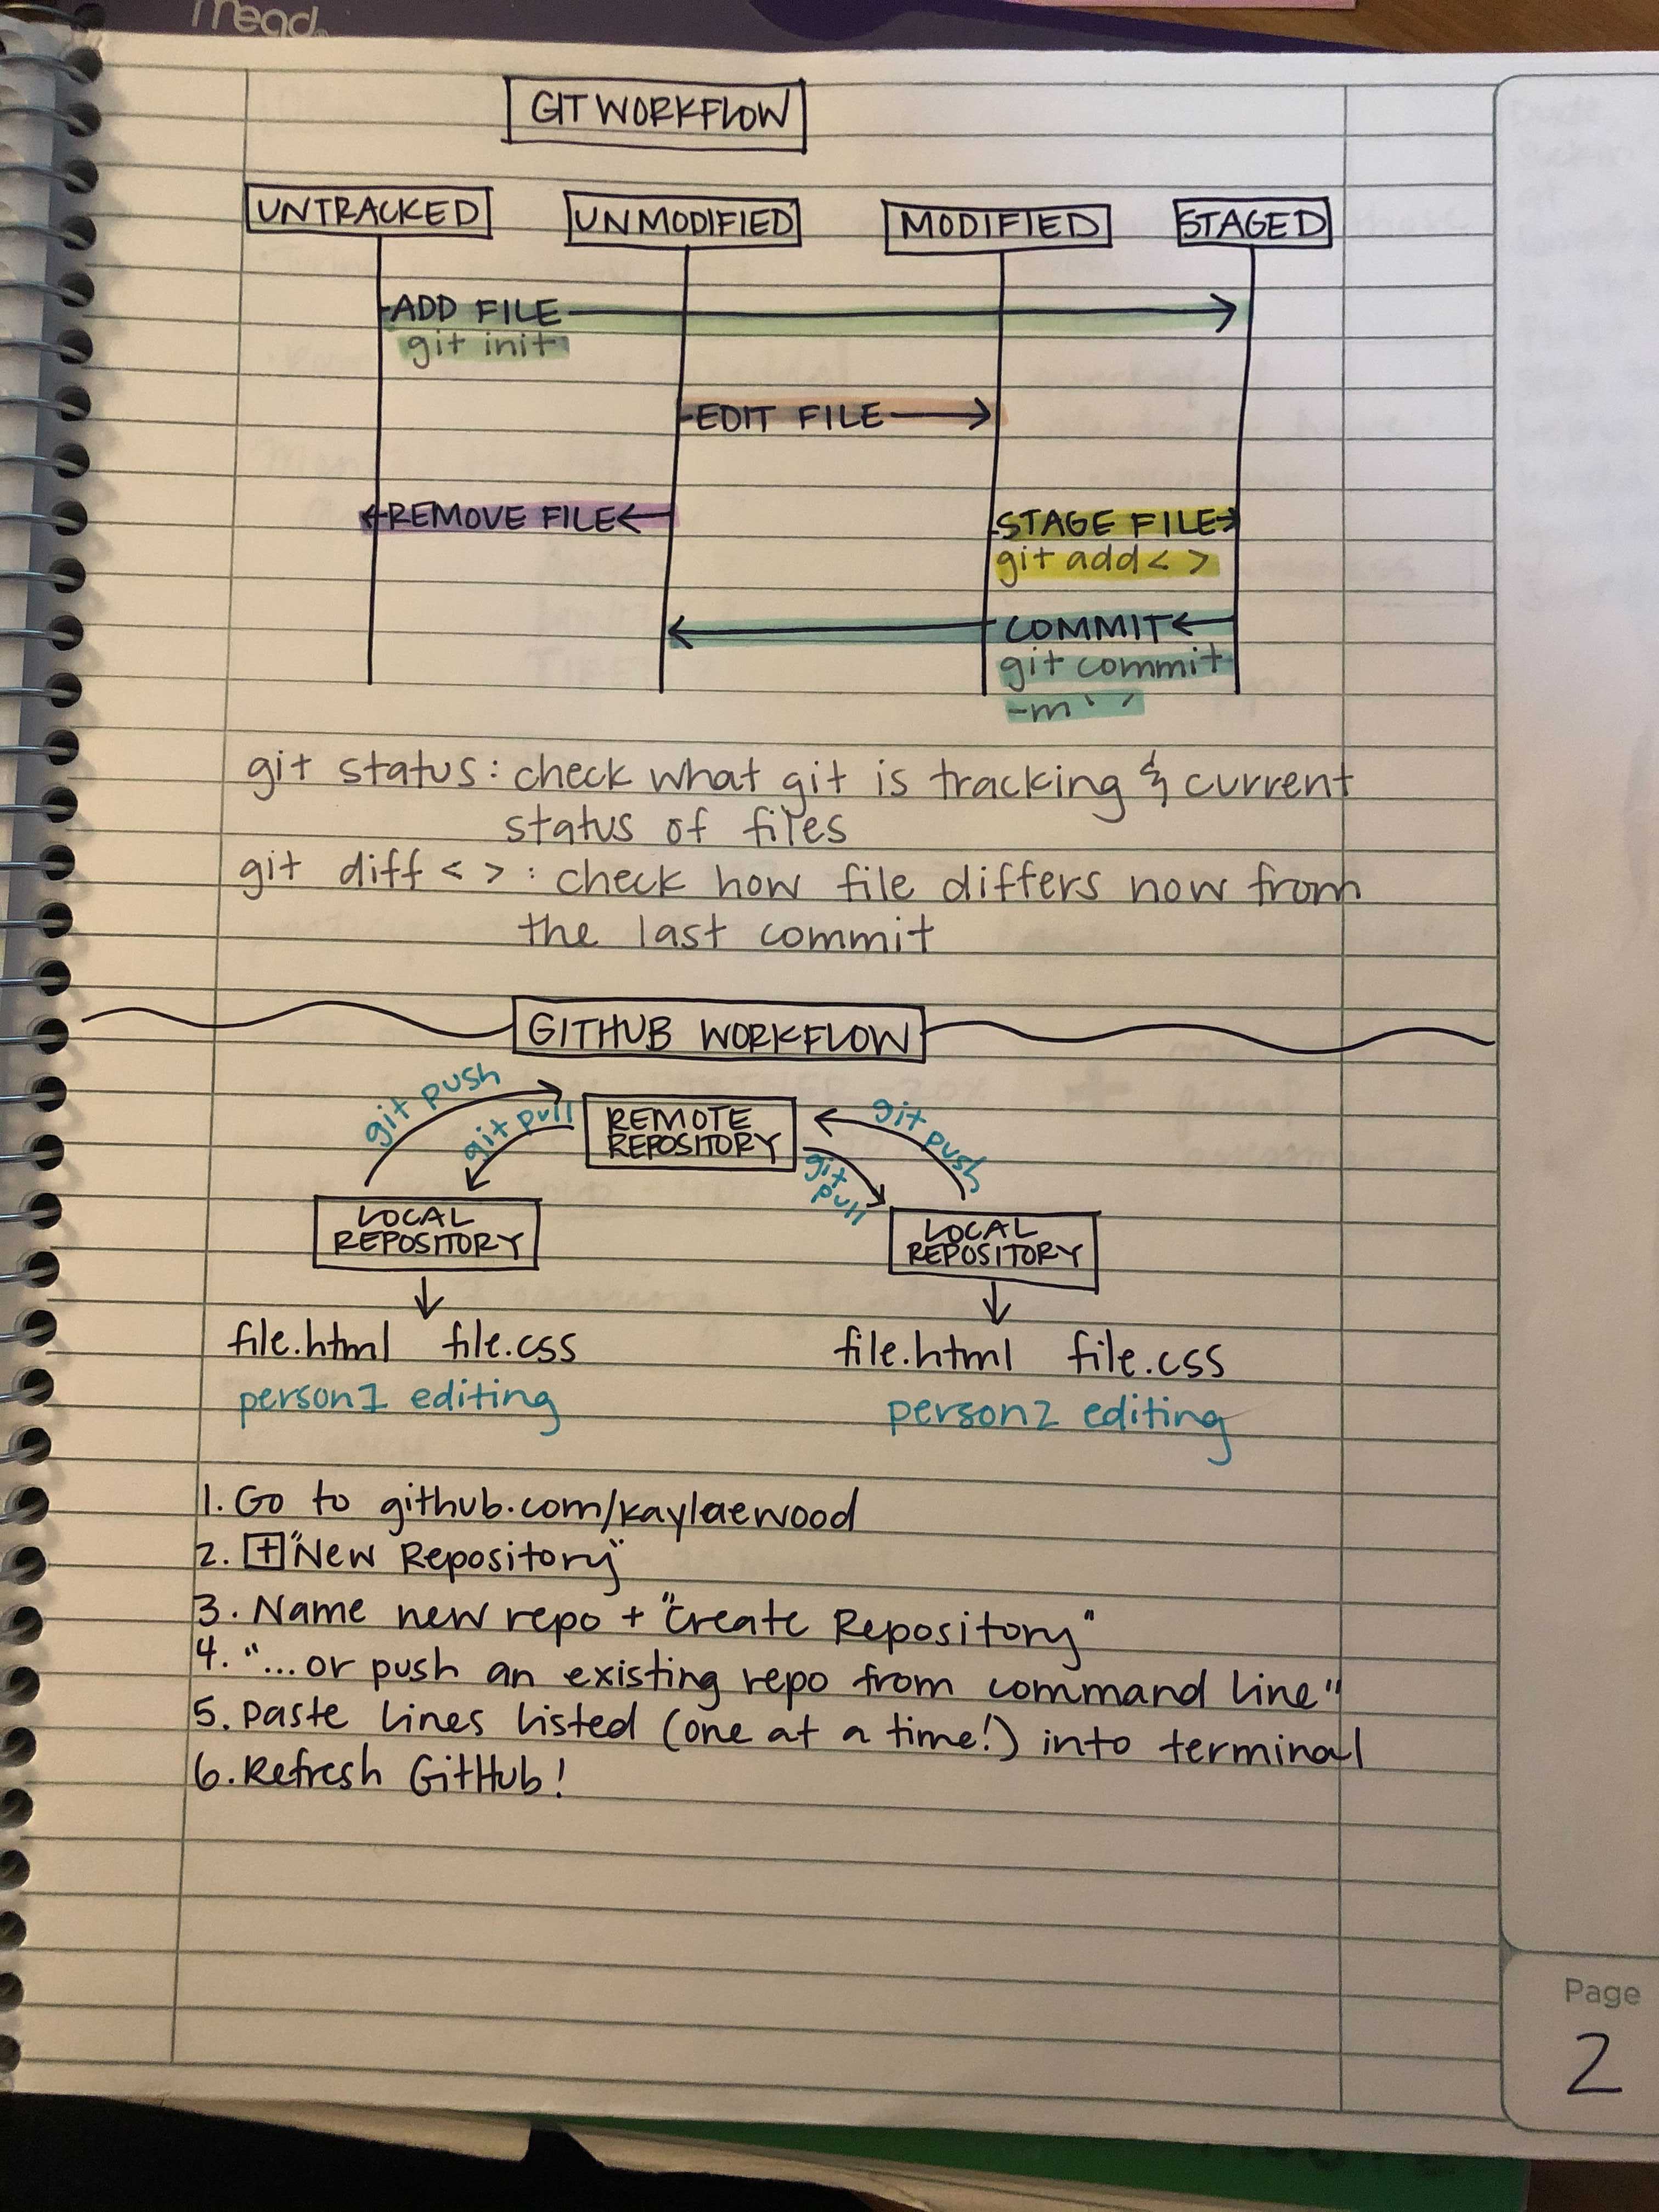 mead
GIT WORKFLOW
UNTRACKED UNMODIFIED MODIFIED STAGED
ADD FILE
git init
EDIT FILE
REMOVE FILE STAGE FILE
git add < >
COMMIT
git commit
-m ' '
git status: check what git is tracking & current
status of files
git diff < > : check how file differs now from
the last commit
GITHUB WORKFLOW
git push git pull REMOTE REPOSITORY git push
git pull
LOCAL REPOSITORY LOCAL REPOSITORY
file.html file.css file.html file.css
person1 editing person2 editing
1. Go to github.com/kaylaewood
2. + "New Repository"
3. Name new repo + "Create Repository"
4. "...or push an existing repo from command line"
5. Paste lines listed (one at a time!) into terminal
6. Refresh GitHub!
Page
2